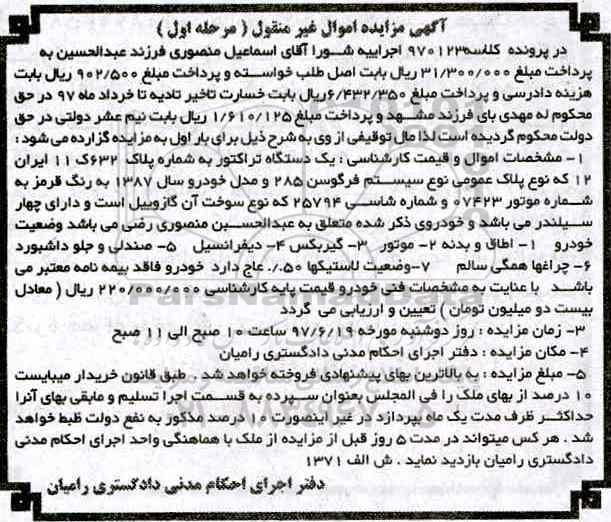 آگهی مزایده اموال غیر منقول ( مرحله اول )
در پرونده کلاسه۹۷۰۱۲۳ اجراییه شورا آقای اسماعیل منصوری فرزند عبدالحسین به
پرداخت مبلغ ۳۱/۳۰۰/۰۰۰ ریال بابت اصل طلب خواسته و پرداخت مبلغ ۹۰۲/۵۰۰ ریال بابت
هزینه دادرسی و پرداخت مبلغ ۶/۴۳۲/۳۵۰ریال بابت خسارت تاخیر تادیه تا خرداد ماه ۹۷ در حق
محکوم له مهدی بای فرزند مشهد و پرداخت مبلغ ۱/۶۱۰/۱۲۵ ریال بابت نیم عشر دولتی در حق
دولت محکوم گردیده است لذا مال توقیفی از وی به شرح ذیل برای بار اول به مزایده گزارده می شود :
۱- مشخصات اموال و قیمت کارشناسی : یک دستگاه تراکتور به شماره پلاک ۶۳۲ک ۱۱ ایران
۱۲ که نوع پلاک عمومی نوع سیستم فرگوسن ۲۸۵ و مدل خودرو سال ۱۳۸۷ به رنگ قرمز به
شماره موتور ۰۷۴۲۳ و شماره شاسی ۲۵۷۹۴ که نوع سوخت آن گازوییل است و دارای چهار
سیلندر می باشد و خودروی ذکر شده متعلق به عبدالحسین منصوری رضی می باشد وضعیت
خودرو ۱- اطاق و بدنه ۲- موتور ۳- گیربکس ۴- دیفرانسیل ۵- صندلی و جلو داشبورد
۶- چراغها همگی سالم ۷-وضعیت لاستیکها ۵۰٪. عاج دارد خودرو فاقد بیمه نامه معتبر می
باشد با عنایت به مشخصات فنی خودرو قیمت پایه کارشناسی ۲۲۰/۰۰۰/۰۰۰ ریال ( معادل
بیست دو میلیون تومان ) تعیین و ارزیابی می گردد
۳- زمان مزایده : روز دوشنبه مورخه ۹۷/۶/۱۹ ساعت ۱۰ صبح الی ۱۱ صبح
۴- مکان مزایده : دفتر اجرای احکام مدنی دادگستری رامیان
۵- مبلغ مزایده : به بالاترین بهای پیشنهادی فروخته خواهد شد . طبق قانون خریدار میبایست
۱۰ درصد از بهای ملک را فی المجلس بعنوان سپرده به قسمت اجرا تسلیم و مابقی بهای آنرا
حداکثر ظرف مدت یک ماه بپردازد در غیر اینصورت ۱۰درصد مذکور به نفع دولت ظبط خواهد
شد . هر کس میتواند در مدت ۵ روز قبل از مزایده از ملک با هماهنگی واحد اجرای احکام مدنی
دادگستری رامیان بازدید نماید . ش الف ۱۳۷۱
دفتر اجرای احکام مدنی دادگستری رامیان
ParsNamadData